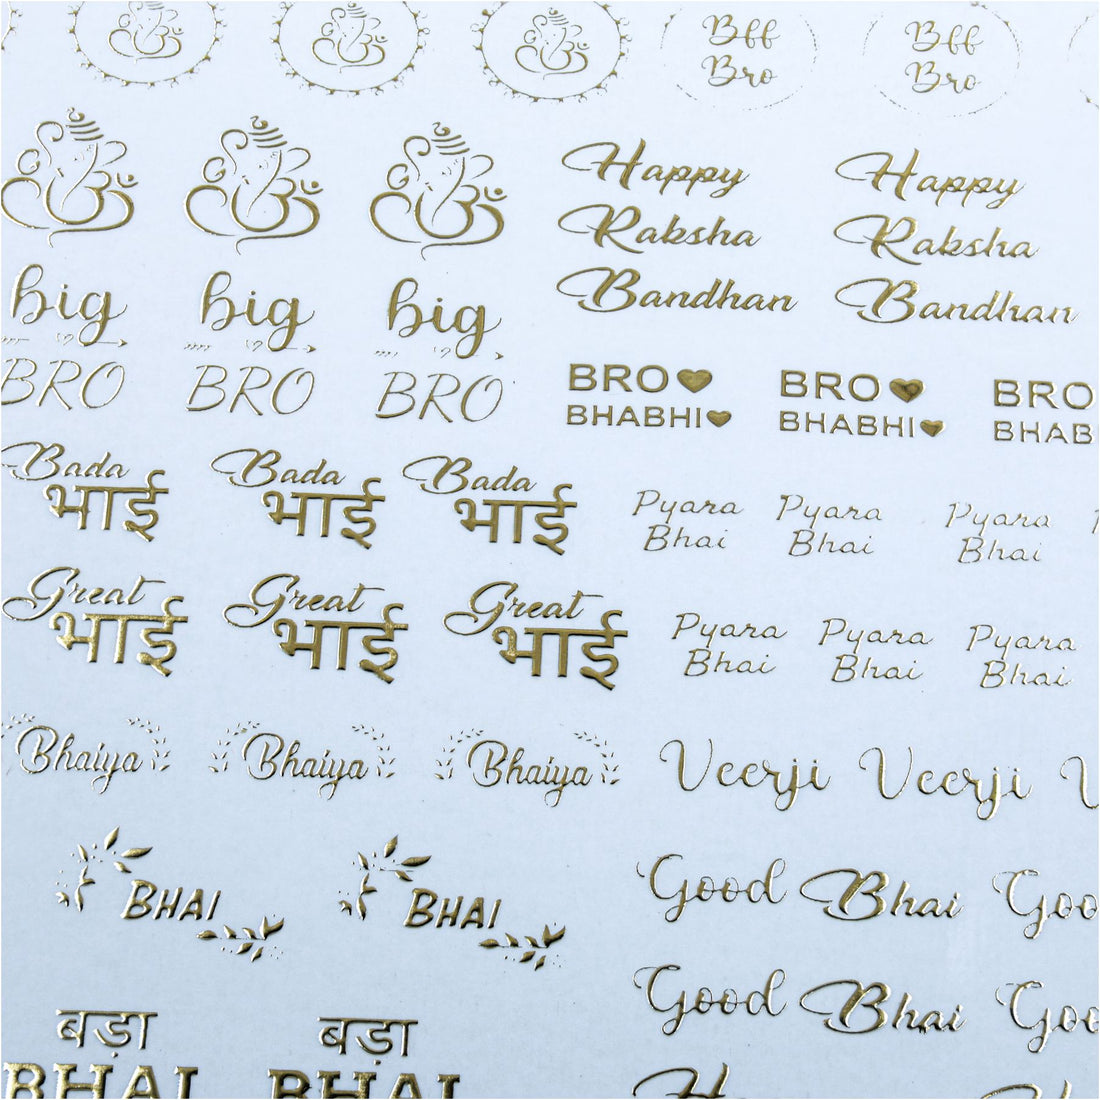 Bff
Bro
Bff
Bro
Happy
Raksha
Bandhan
Happy
Raksha
Bandhan
big
BRO
big
BRO
big
BRO
BRO
BHABHI
BRO
BHABHI
BRO
BHAB
Bada
भाई
Bada
भाई
Bada
भाई
Pyara
Bhai
Pyara
Bhai
Pyara
Bhai
Great
भाई
Great
भाई
Great
भाई
Pyara
Bhai
Pyara
Bhai
Pyara
Bhai
Bhaiya
Bhaiya
Bhaiya
Veerji
Veerji
V
BHAI
BHAI
Good Bhai
Goo
Good Bhai
Goo
बड़ा
BHAI
बड़ा
BHAI